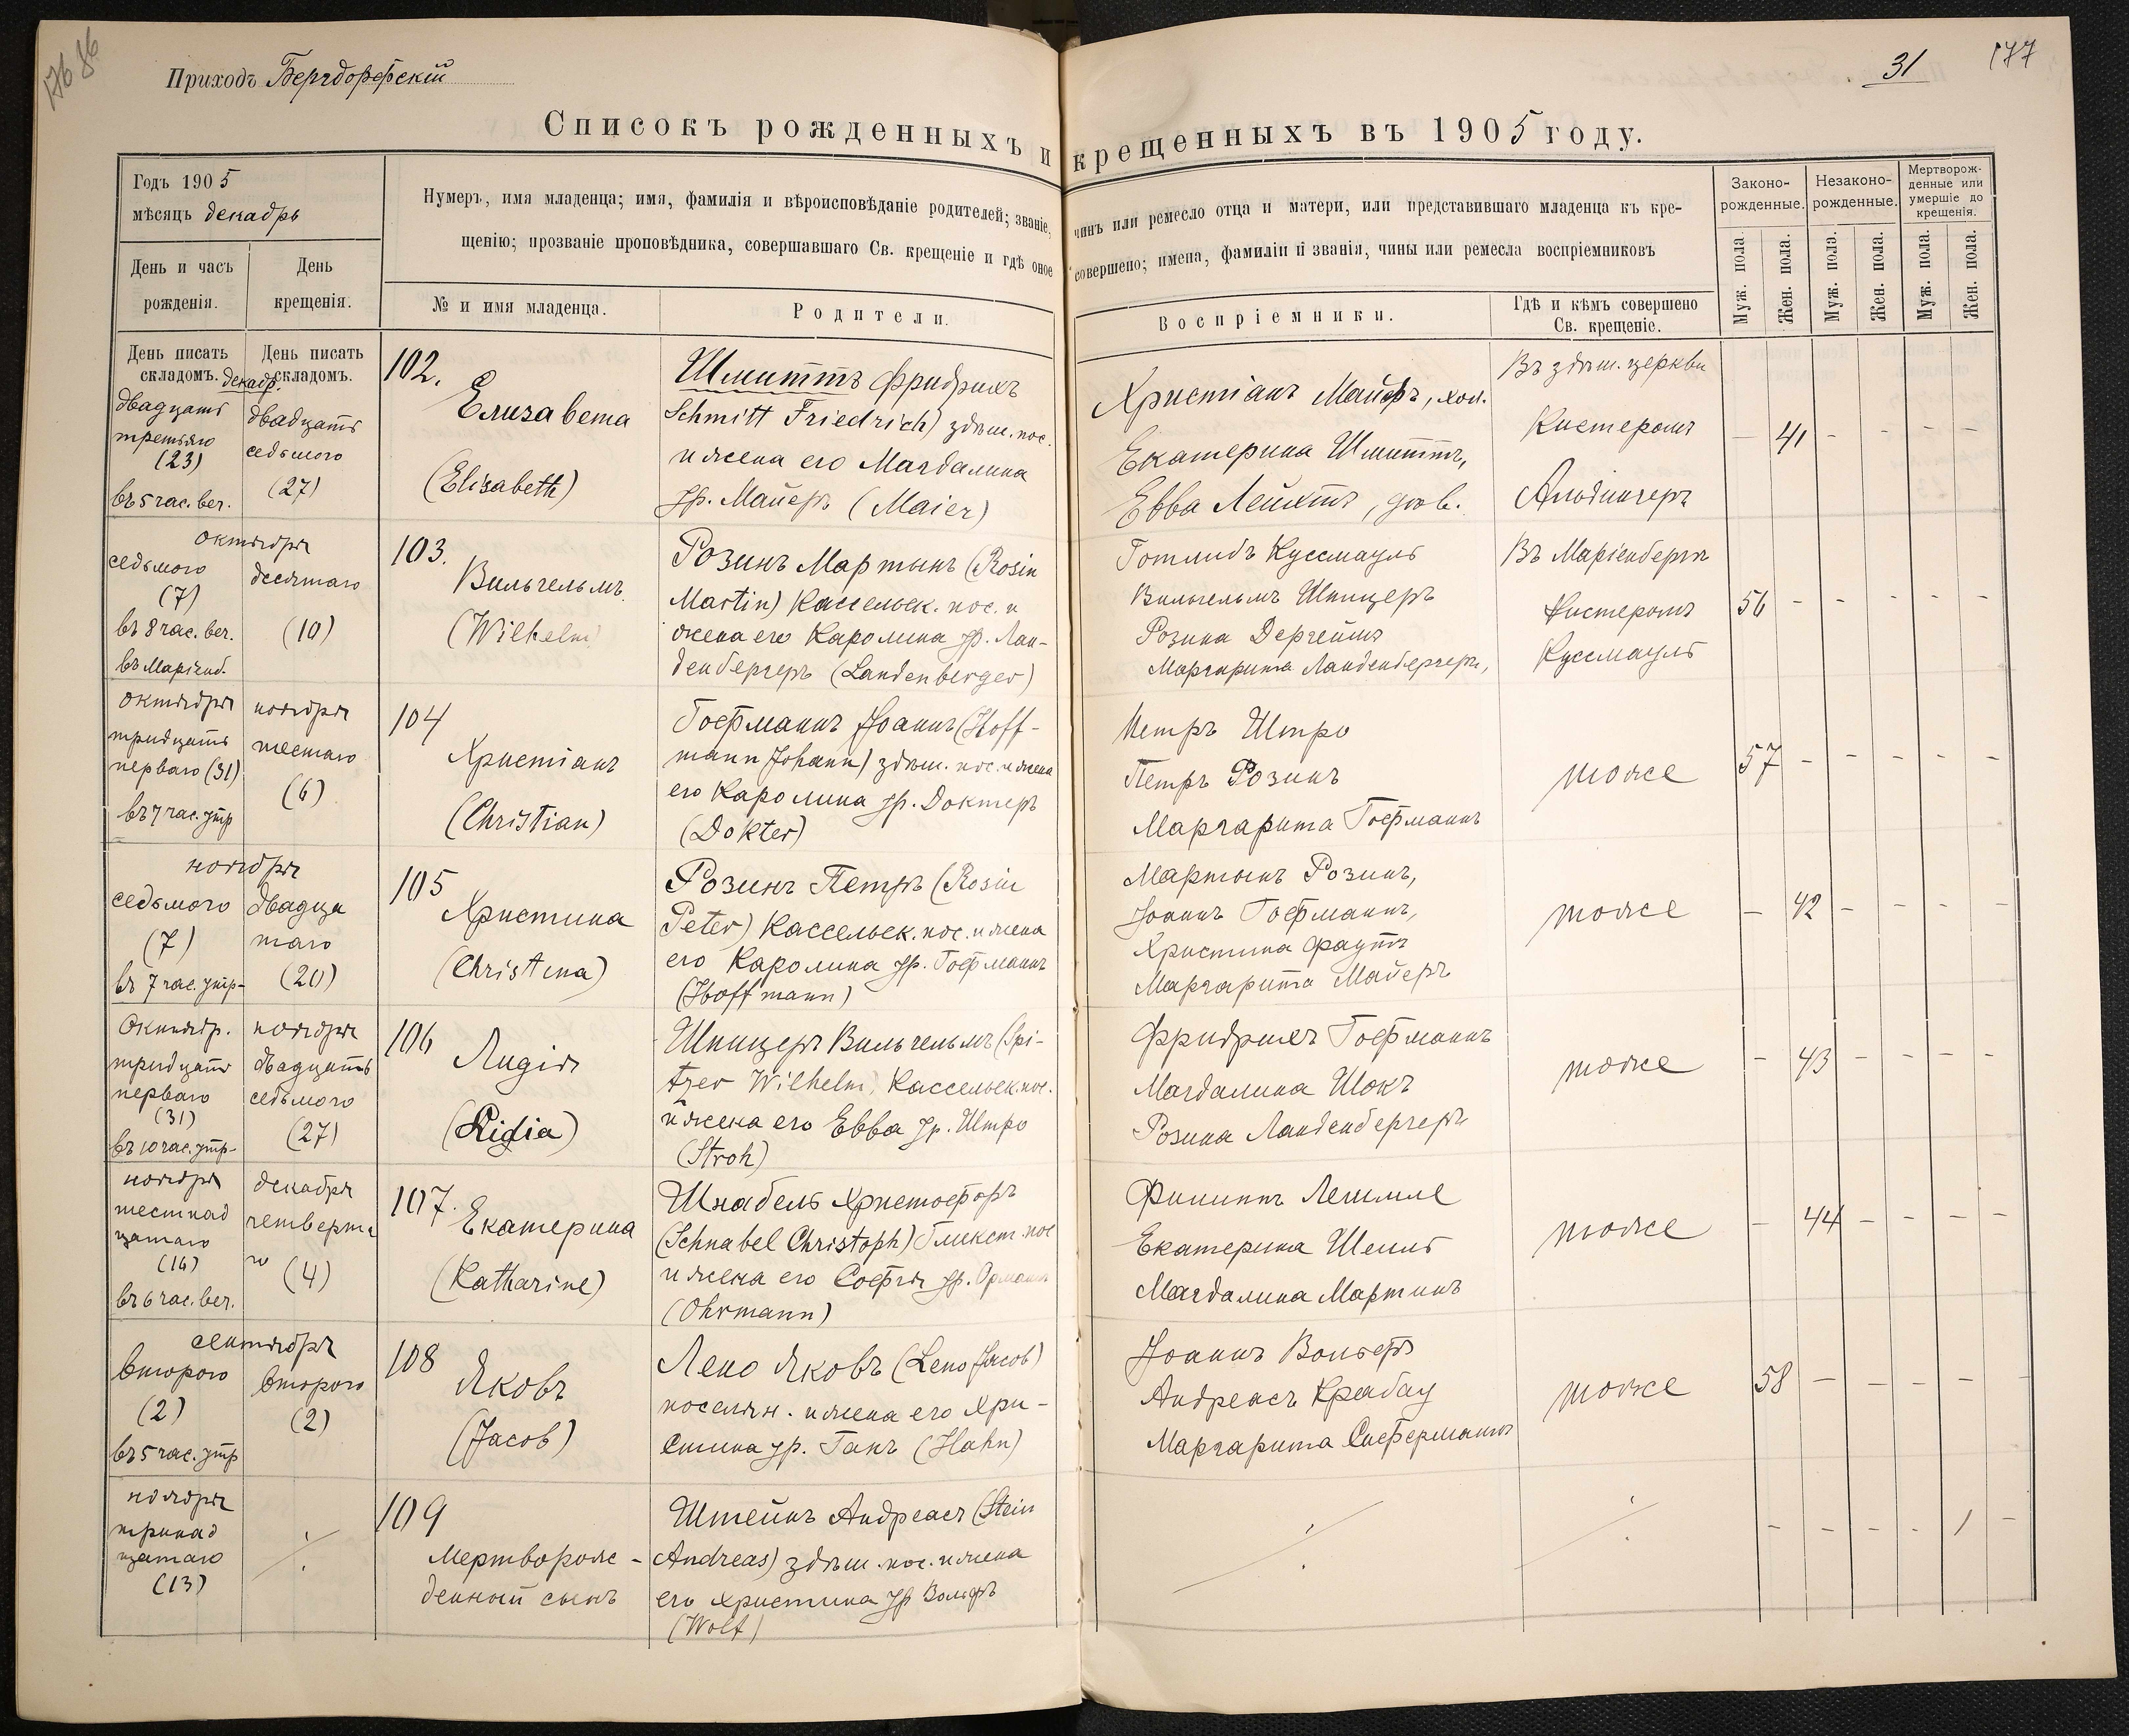 176 86
Приходъ Бергдорфскій
31
177
Списокъ рожденныхъ и крещенныхъ въ 1905 году.
Годъ 1905
мѣсяцъ декабрь
День и часъ рожденія.
День крещенія.
Нумеръ, имя младенца; имя, фамилія и вѣроисповѣданіе родителей; званіе, чинъ или ремесло отца и матери, или представившаго младенца къ кре-
щенію; прозваніе проповѣдника, совершавшаго Св. крещеніе и гдѣ оное совершено; имена, фамиліи и званія, чины или ремесла воспріемниковъ
№ и имя младенца.
Родители.
Воспріемники.
Гдѣ и кѣмъ совершено
Св. крещеніе.
Законо-
рожденные.
Незаконо-
рожденные.
Мертворож-
денные или
умершіе до
крещенія.
Муж. пола.
Жен. пола.
Муж. пола.
Жен. пола.
Муж. пола.
Жен. пола.
День писать
складомъ.
День писать
складомъ.
декабр.
двадцать
третьяго
(23)
въ 5 час. веч.
двадцать
седьмого
(27)
102.
Елизавета
(Elisabeth)
Шмиттъ Фридрихъ
Schmitt Friedrich) здѣш. пос.
и жена его Магдалина
ур. Майеръ (Maier)
Христіанъ Майеръ, хол.
Екатерина Шмиттъ,
Евва Лейхтъ, дѣв.
Въ здѣш. церкви
Кистеромъ
Альдингеръ
— 41 - - - -
октября
седьмого
(7)
въ 8 час. веч.
въ Маріенб.
десятаго
(10)
103.
Вильгельмъ
(Wilhelm)
Розинъ Мартынъ (Rosin
Martin) Кассельск. пос. и
жена его Каролина ур. Лан-
денбергеръ (Landenberger)
Готлибъ Куссмауль
Вильгельмъ Шпицеръ
Розина Дергеймъ
Маргарита Ланденбергеръ,
Въ Маріенбергѣ
Кистеромъ
Куссмауль
56 - - - - -
октября
тридцать
перваго (31)
въ 7 час. утр
ноября
шестаго
(6)
104
Христіанъ
(Christian)
Гофманнъ Іоаннъ (Hoff-
mann Johann) здѣш. пос. и жена
его Каролина ур. Доктеръ
(Dokter)
Петръ Штро
Петръ Розинъ
Маргарита Гофманнъ
тоже
57 - - - - -
ноября
седьмого
(7)
въ 7 час. утр-
двадца
таго
(20)
105
Христина
(Christina)
Розинъ Петръ (Rosin
Peter) Кассельск. пос. и жена
его Каролина ур. Гофманнъ
(Hoffmann)
Мартынъ Розинъ,
Іоаннъ Гофманнъ,
Христина Фаутъ
Маргарита Майеръ
тоже
— 42 - - - -
Октябр.
тридцать
перваго
(31)
въ 10 час. утр-
ноября
двадцать
седьмого
(27)
106
Лидія
(Lidia)
Шпицеръ Вильгельмъ (Spi-
tzer Wilhelm) Кассельск. пос.
и жена его Евва ур. Штро
(Stroh)
Фридрихъ Гофманнъ
Магдалина Шокъ
Розина Ланденбергеръ
тоже
- 43 - - - -
ноября
шестнад
цатаго
(16)
въ 6 час. веч.
декабря
четверта
го
(4)
107.
Екатерина
(Katharine)
Шнабель Христофоръ
(Schnabel Christoph) Гликст. пос
и жена его Софія ур. Орманнъ
(Ohrmann)
Филиппъ Лешмле
Екатерина Шелль
Магдалина Мартинъ
тоже
- 44 - - - -
сентября
второго
(2)
въ 5 час. утр
второго
(2)
108
Яковъ
(Jacob)
Лено Яковъ (Leno Jacob)
поселян. и жена его Хри-
стина ур. Ганъ (Hahn)
Іоаннъ Вольфъ
Андреасъ Крабау
Маргарита
тоже
58 — - - - -
ноября
тринад
цатаго
(13)
109
Мертворож-
денный сынъ
Штейнъ Андреасъ (Stein
Andreas) здѣш. пос. и жена
его Христина ур Вольфъ
(Wolf)
- - - - 1 -